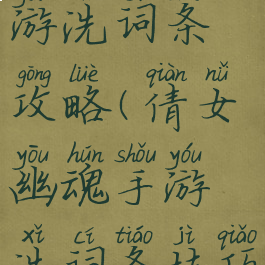 游洗词条
gōng lüè qiàn nǚ
攻略(倩女
yōu hún shǒu yóu
幽魂手游
xǐ cí tiáo jì qiǎo
洗词条技巧